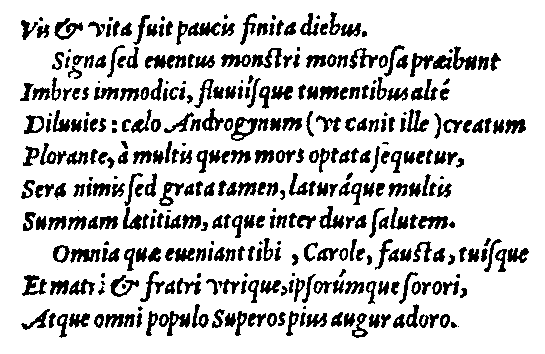 Vis & vita fuit paucis finita diebus.
Signa sed euentus monſtri monſtroſa præibunt
Imbres immodici, fluuiíſque tumentibus alté
Diluuies: cælo Androgynum (vt canit ille) creatum
Plorante, à multis quem mors optata ſequetur,
Sera nimis ſed grata tamen, laturáque multis
Summam lætitiam, atque inter dura ſalutem.
Omnia quæ eueniant tibi, Carole, fauſta, tuíſque
Et matri & fratri vtrique, ipſorúmque ſorori,
Atque omni populo Superos pius augur adoro.